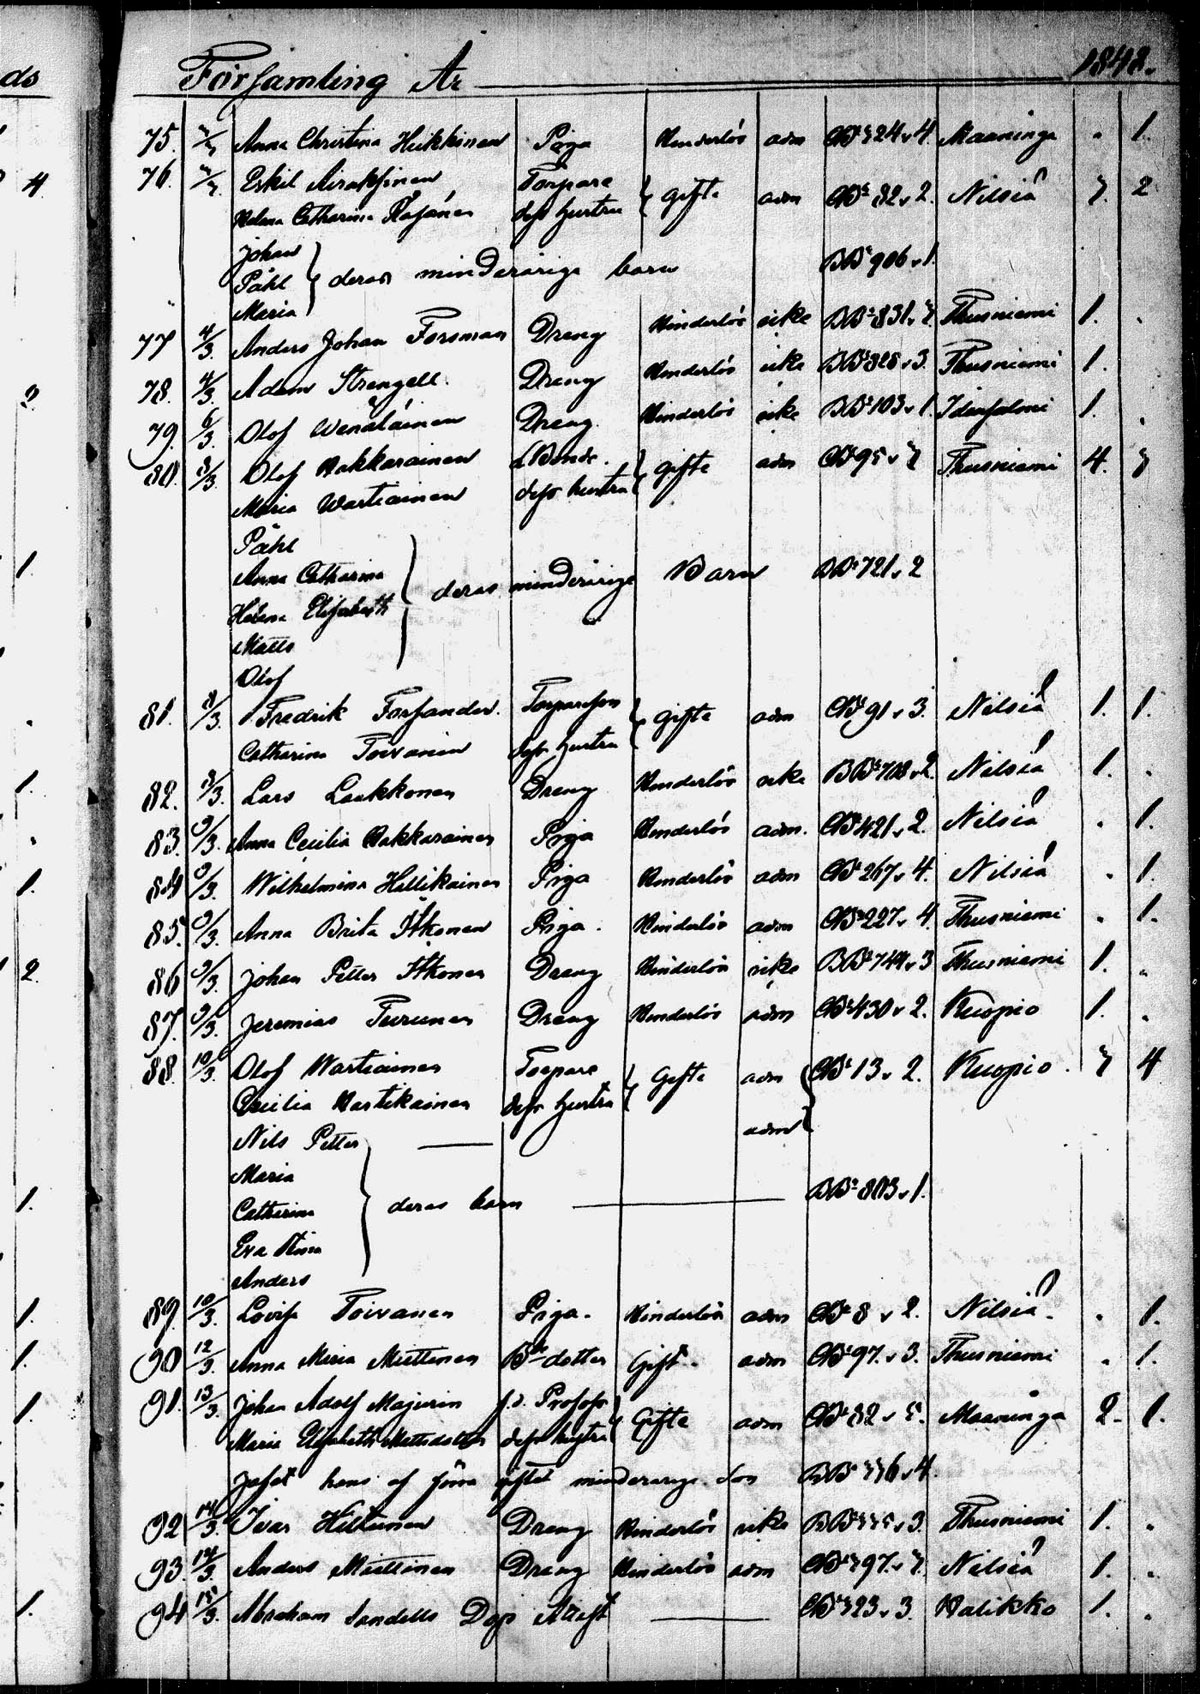 ds
Församling År 1842.
75. Anna Christina Heikkinen Piga Hinderlös adm CB: 324 v 4. Maaninga . 1.
76. Eskil Airaksinen Torpare
Helena Catharina Räsänen dess hustru Gifte adm CB: 82 v 2. Nilsiä 3. 2
Johan
Påhl deras minderårige barn BB: 906 v 1.
Maria
77 4/3. Anders Johan Forsman Dreng Hinderlös icke BB: 831 v 3. Thusniemi 1. .
78. 4/3. Adam Strengell. Dreng Hinderlös icke BB: 828 v 3. Thusniemi 1.
79. 6/3. Olof Wänäläinen Dreng. Hinderlös icke BB: 103 v 1. Idensalmi 1. .
80. 8/3. Olof Hakkarainen Bonde.
Maria Wartiainen dess hustru Gifte adm CB: 95 v 3 Thusniemi 4. 3
Påhl
Anna Catharina
Helena Elisabeth deras minderårige Barn BB: 721 v 2
Matts
Olof
81. 8/3. Fredrik Forsander. Torpareson
Catharina Toivanen dess hustru Gifte adm CB: 91 v 3. Nilsiä 1. 1.
82. 8/3. Lars Laukkonen Dreng Hinderlös icke BB: 708 v 2. Nilsiä 1. .
83. 9/3. Anna Cecilia Hakkarainen Piga Hinderlös adm. CB: 421 v 2. Nilsiä . 1.
84 9/3. Wilhelmina Hillikainen Piga Hinderlös adm CB: 267 v 4. Nilsiä . 1.
85. 9/3. Anna Brita Itkonen Piga. Hinderlös adm CB: 227 v 4. Thusniemi . 1.
86 9/3. Johan Petter Itkonen Dreng Hinderlös icke BB: 744 v 3 Thusniemi 1. .
87. 9/3. Jeremias Turunen Dreng Hinderlös adm CB: 430 v 2. Kuopio 1. .
88. 10/3. Olof Wartiainen Torpare
Cecilia Hartikainen dess hustru Gifte adm CB: 13 v 2. Kuopio. 3 4
Nils Petter adm
Maria
Catharina deras barn BB: 803 v 1.
Eva Stina
Anders
89. 10/3. Lovisa Toivanen Piga. Hinderlös adm CB: 8 v 2. Nilsiä. . 1.
90 12/3. Anna Maria Miettinen Bde dotter Gift. adm CB: 97. v 3. Thusniemi . 1.
91. 13/3. Johan Adolf Majurin f.d. Profoss
Maria Elisabeth Mattsdotter dess hustru Gifte adm CB: 82 v 5. Maaninga 2. 1.
Josef hans af förra giftet minderårige son BB: 336 v 4.
92 14/3. Ivar Hiltunen Dreng Hinderlös icke BB: 335 v 3. Thusniemi 1. .
93. 14/3. Anders Miettinen Dreng Hinderlös adm CB: 397. v 3. Nilsiä 1. .
94 15/3. Abraham Sandells Dop Attest CB: 323 v 3. Halikko 1. .